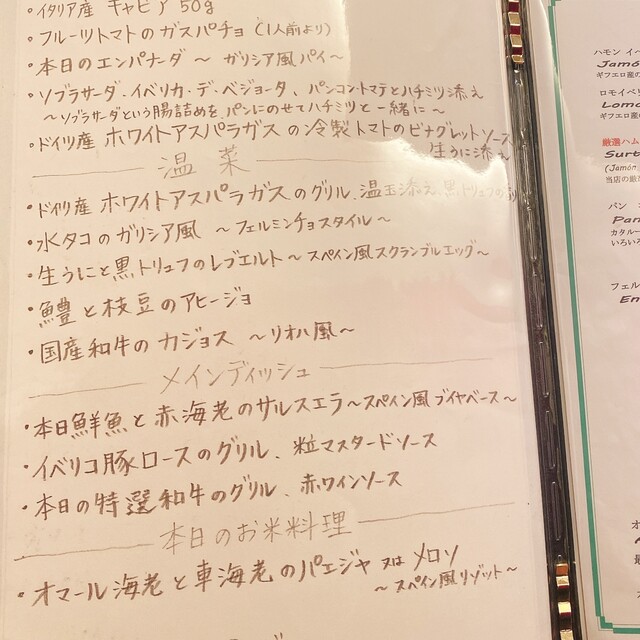 ・イタリア産 キャビア 50g
・フルーツトマトのガスパチョ (1人前より)
・本日のエンパナーダ 〜 ガリシア風パイ〜
・ソブラサーダ・イベリカ・デ・ベジョータ、パンコントマテとハチミツ添え
〜ソブラサーダという腸詰めを、パンにのせてハチミツと一緒に〜
・ドイツ産 ホワイトアスパラガスの冷製トマトのビナグレットソース
生うに添え
温菜
・ドイツ産 ホワイトアスパラガスのグリル、温玉添え、黒トリュフの
・水タコのガリシア風 〜フェルミンチョスタイル〜
・生うにと黒トリュフのレブエルト〜スペイン風スクランブルエッグ〜
・鱧と枝豆のアヒージョ
・国産和牛のカジョス 〜リオハ風〜
メインディッシュ
・本日鮮魚と赤海老のサルスエラ〜スペイン風ブイヤベース〜
・イベリコ豚ロースのグリル、粒マスタードソース
・本日の特選和牛のグリル、赤ワインソース
本日のお米料理
・オマール海老と車海老のパエジャ 又は メロソ
〜スペイン風リゾット〜
ハモン イベ
Jamó
ギフエロ産の
ロモイベリ
Lomo
ギフエロ産の
厳選ハム
Surt
(Jamón
当店の厳
パン コ
Pan
カタルー
いろいろ
フェル
En